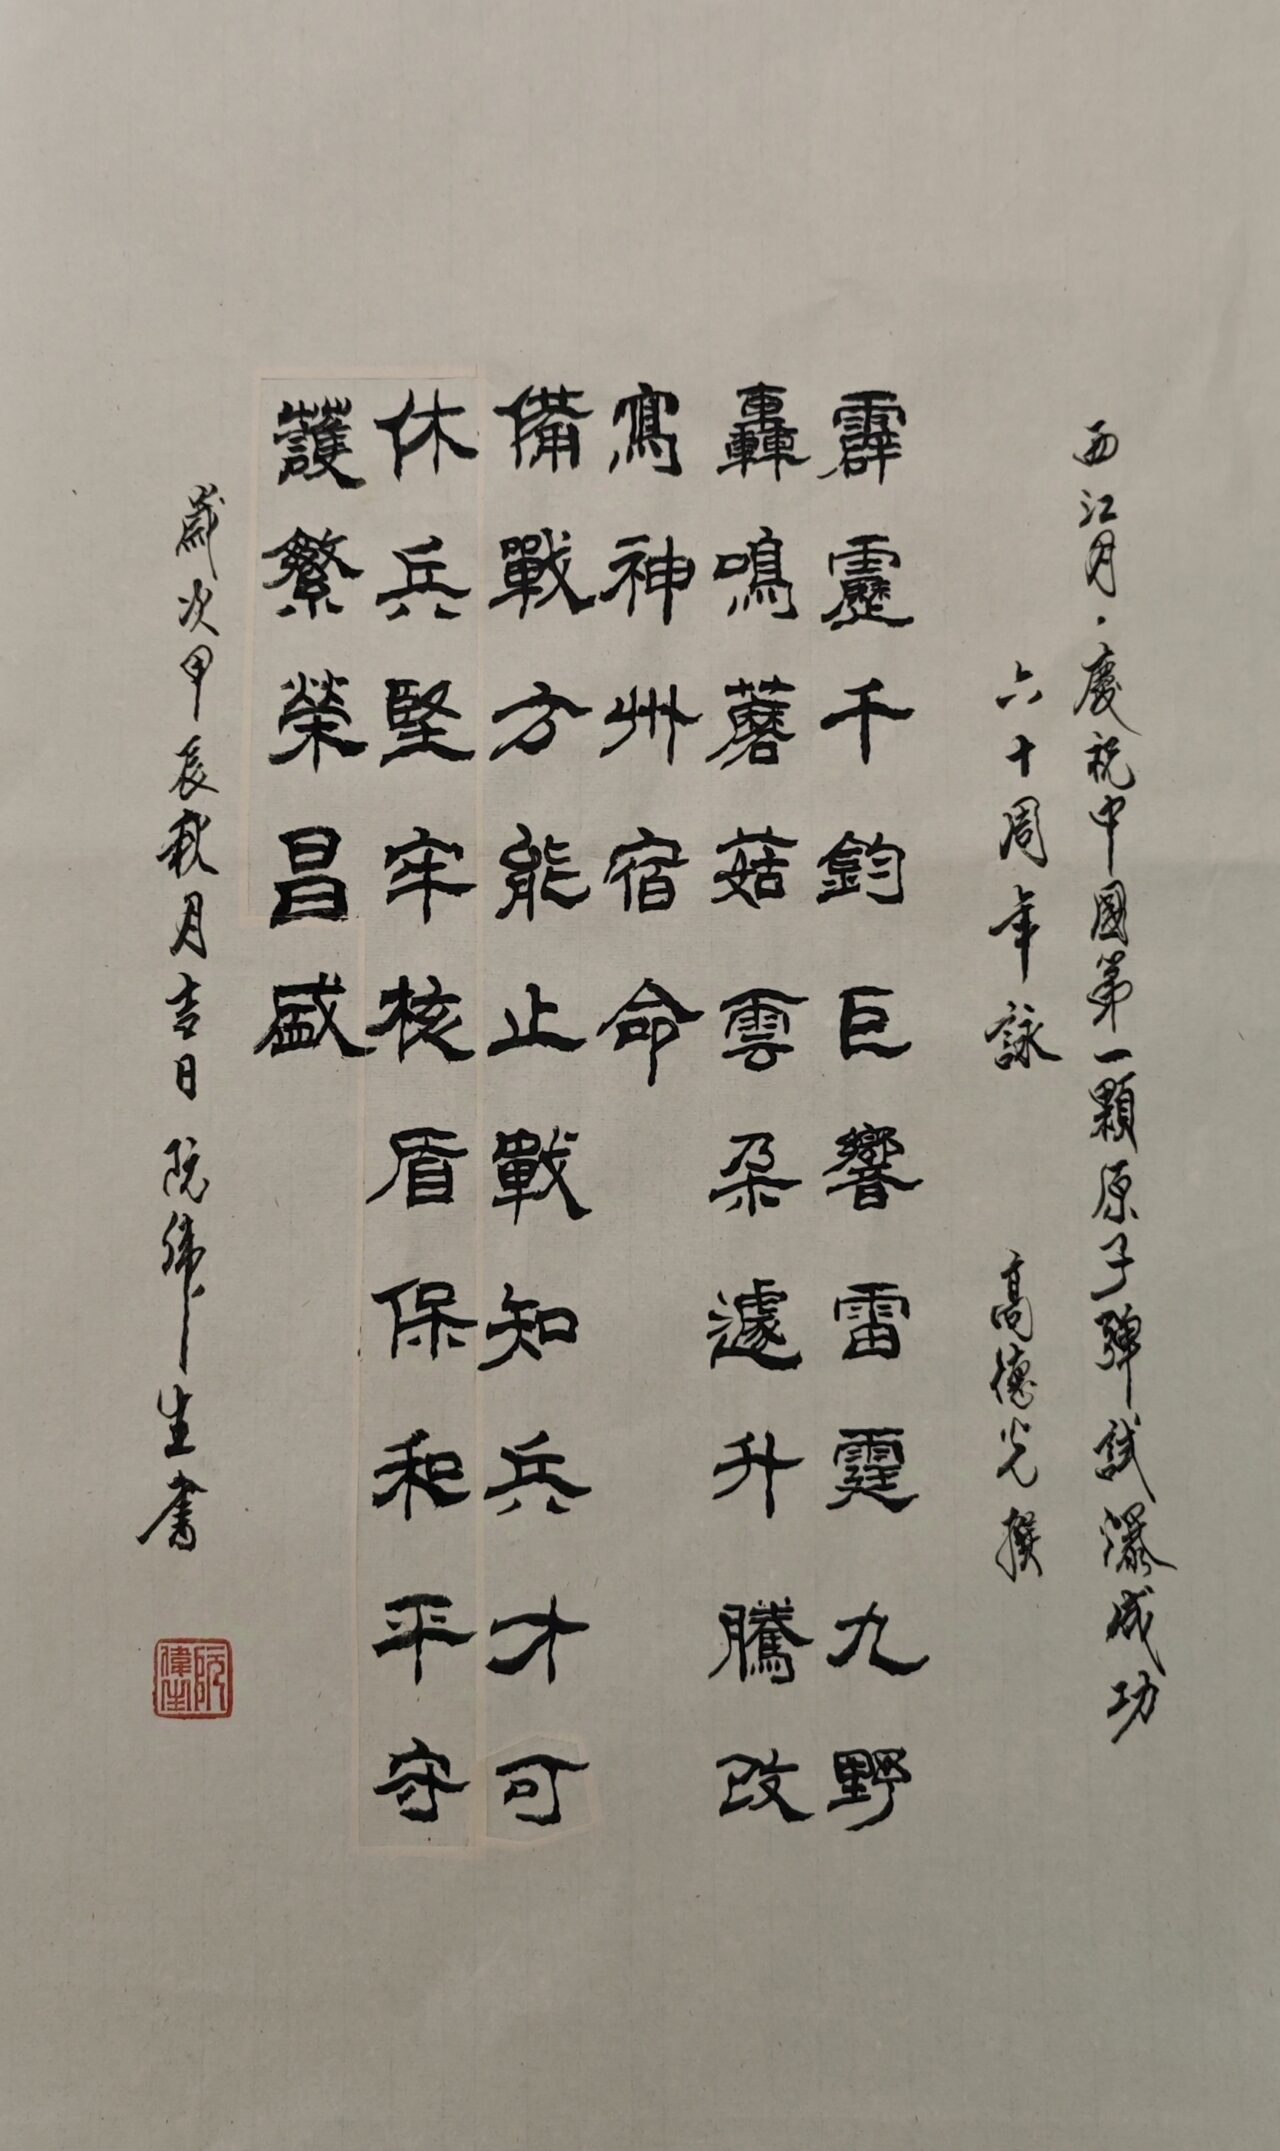 西江月·慶祝中國第一顆原子彈試瀑成功
六十周年詠 高德光撰
霹靂千鈞巨響雷霆九野
轟鳴蘑菇雲朵遽升騰改
寫神州宿命
備戰方能止戰知兵才可
休兵堅牢核盾保和平守
護繁榮昌盛
歲次甲辰秋月吉日阮偉生書
阮偉生